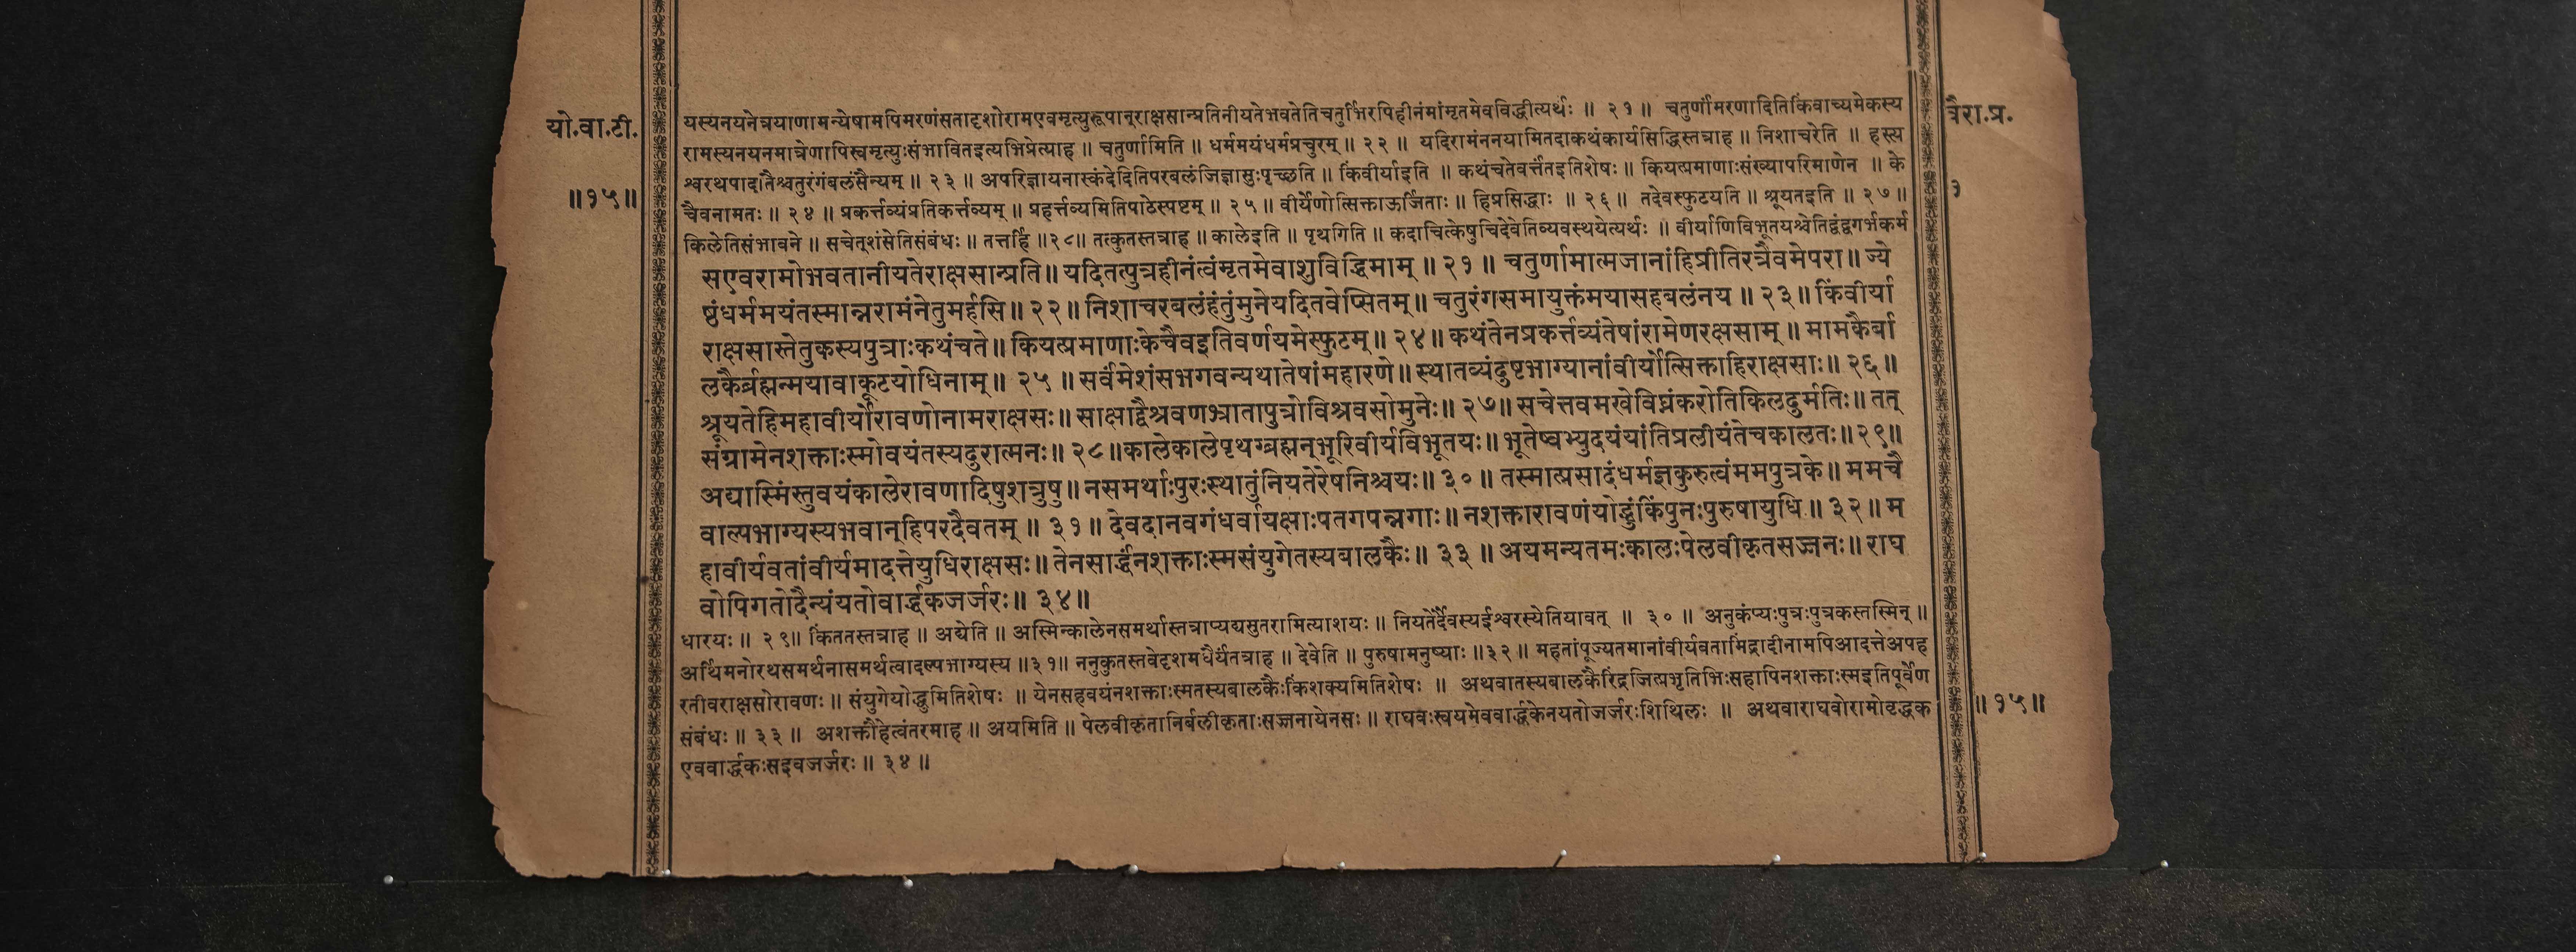 यो.वा.टी.
॥१५॥
वैरा.प्र.
३
यस्यनयनेत्रयाणामन्येषामपिमरणंसतादृशोरामएवमृत्युरूपान्राक्षसान्प्रतिनीयतेभवतेतिचतुर्भिरपिहीनंमांमृतमेवविद्धीत्यर्थः ॥ २१ ॥ चतुर्णांमरणादितिकिंवाच्यमेकस्य
रामस्यनयनमात्रेणापिस्वमृत्युःसंभावितइत्यभिप्रेत्याह ॥ चतुर्णामिति ॥ धर्ममयंधर्मप्रचुरम् ॥ २२ ॥ यदिरामंननयामितदाकथंकार्यसिद्धिस्तत्राह ॥ निशाचरेति ॥ हस्त्य
श्वरथपादातैश्चतुरंगंबलंसैन्यम् ॥ २३ ॥ अपरिज्ञायनास्कंदेदितिपरबलंजिज्ञासुःपृच्छति ॥ किंवीर्याइति ॥ कथंचतेवर्त्तंतइतिशेषः ॥ कियत्प्रमाणाःसंख्यापरिमाणेन ॥ के
चैवनामतः ॥ २४ ॥ प्रकर्त्तव्यंप्रतिकर्त्तव्यम् ॥ प्रहर्त्तव्यमितिपाठेस्पष्टम् ॥ २५ ॥ वीर्येणोत्सिक्ताऊर्जिताः ॥ हिप्रसिद्धाः ॥ २६ ॥ तदेवस्फुटयति ॥ श्रूयतइति ॥ २७ ॥
किलेतिसंभावने ॥ सचेत्शंसेतिसंबंधः ॥ तत्तर्हि ॥२८॥ तत्कुतस्तत्राह ॥ कालेइति ॥ पृथगिति ॥ कदाचित्केषुचिदेवेतिव्यवस्थयेत्यर्थः ॥ वीर्याणिविभूतयश्चेतिद्वंद्वगर्भकर्म
सएवरामोभवतानीयतेराक्षसान्प्रति॥ यदितत्पुत्रहीनंत्वंमृतमेवाशुविद्धिमाम् ॥ २१ ॥ चतुर्णामात्मजानांहिप्रीतिरत्रैवमेपरा॥ ज्ये
ष्ठंधर्ममयंतस्मान्नरामंनेतुमर्हसि॥ २२॥ निशाचरबलंहंतुंमुनेयदितवेप्सितम्॥ चतुरंगसमायुक्तंमयासहबलंनय ॥ २३॥ किंवीर्या
राक्षसास्तेतुकस्यपुत्राःकथंचते॥ कियत्प्रमाणाःकेचैवइतिवर्णयमेस्फुटम्॥ २४॥ कथंतेनप्रकर्त्तव्यंतेषांरामेणरक्षसाम्॥ मामकैर्बा
लकैर्ब्रह्मन्मयावाकूटयोधिनाम्॥ २५ ॥ सर्वंमेशंसभगवन्यथातेषांमहारणे॥ स्थातव्यंदुष्टभाग्यानांवीर्योत्सिक्ताहिराक्षसाः॥ २६॥
श्रूयतेहिमहावीर्योरावणोनामराक्षसः॥ साक्षाद्वैश्रवणभ्रातापुत्रोविश्रवसोमुनेः॥ २७॥ सचेत्तवमखेविघ्नंकरोतिकिलदुर्मतिः॥ तत्
संग्रामेनशक्ताःस्मोवयंतस्यदुरात्मनः॥ २८ ॥कालेकालेपृथग्ब्रह्मन्भूरिवीर्यविभूतयः॥ भूतेष्वभ्युदयंयांतिप्रलीयंतेचकालतः॥२९॥
अद्यास्मिंस्तुवयंकालेरावणादिषुशत्रुषु॥ नसमर्थाःपुरःस्थातुंनियतेरेषनिश्चयः॥ ३० ॥ तस्मात्प्रसादंधर्मज्ञकुरुत्वंममपुत्रके॥ ममचै
वाल्पभाग्यस्यभवान्हिपरदैवतम् ॥ ३१ ॥ देवदानवगंधर्वायक्षाःपतगपन्नगाः॥ नशक्तारावणंयोद्धुंकिंपुनःपुरुषायुधि॥ ३२ ॥ म
हावीर्यवतांवीर्यमादत्तेयुधिराक्षसः॥ तेनसार्द्धंनशक्ताःस्मसंयुगेतस्यबालकैः॥ ३३ ॥ अयमन्यतमःकालःपेलवीकृतसज्जनः॥ राघ
वोपिगतोदैन्यंयतोवार्द्धकजर्जरः॥ ३४॥
धारयः ॥ २९॥ किंततस्तत्राह ॥ अद्येति ॥ अस्मिन्कालेनसमर्थास्तत्राप्यद्यसुतरामित्याशयः ॥ नियतेर्दैवस्यईश्वरस्येतियावत् ॥ ३० ॥ अनुकंप्यःपुत्रःपुत्रकस्तस्मिन् ॥
अर्थिमनोरथसमर्थनासमर्थत्वादल्पभाग्यस्य ॥३१॥ ननुकुतस्तवेदृशमधैर्यंतत्राह ॥ देवेति ॥ पुरुषामनुष्याः ॥३२॥ महतांपूज्यतमानांवीर्यवतामिंद्रादीनामपिआदत्तेअपह
रतीवराक्षसोरावणः ॥ संयुगेयोद्धुमितिशेषः ॥ येनसहवयंनशक्ताःस्मतस्यबालकैःकिंशक्यमितिशेषः ॥ अथवातस्यबालकैरिंद्रजित्प्रभृतिभिःसहापिनशक्ताःस्मइतिपूर्वेण
संबंधः ॥ ३३ ॥ अशक्तौहेत्वंतरमाह ॥ अयमिति ॥ पेलवीकृतानिर्बलीकृताःसज्जनायेनसः ॥ राघवःस्वयमेववार्द्धकेनयतोजर्जरःशिथिलः ॥ अथवाराघवोरामोवृद्धक
एववार्द्धकःसइवजर्जरः ॥ ३४ ॥
॥१५॥